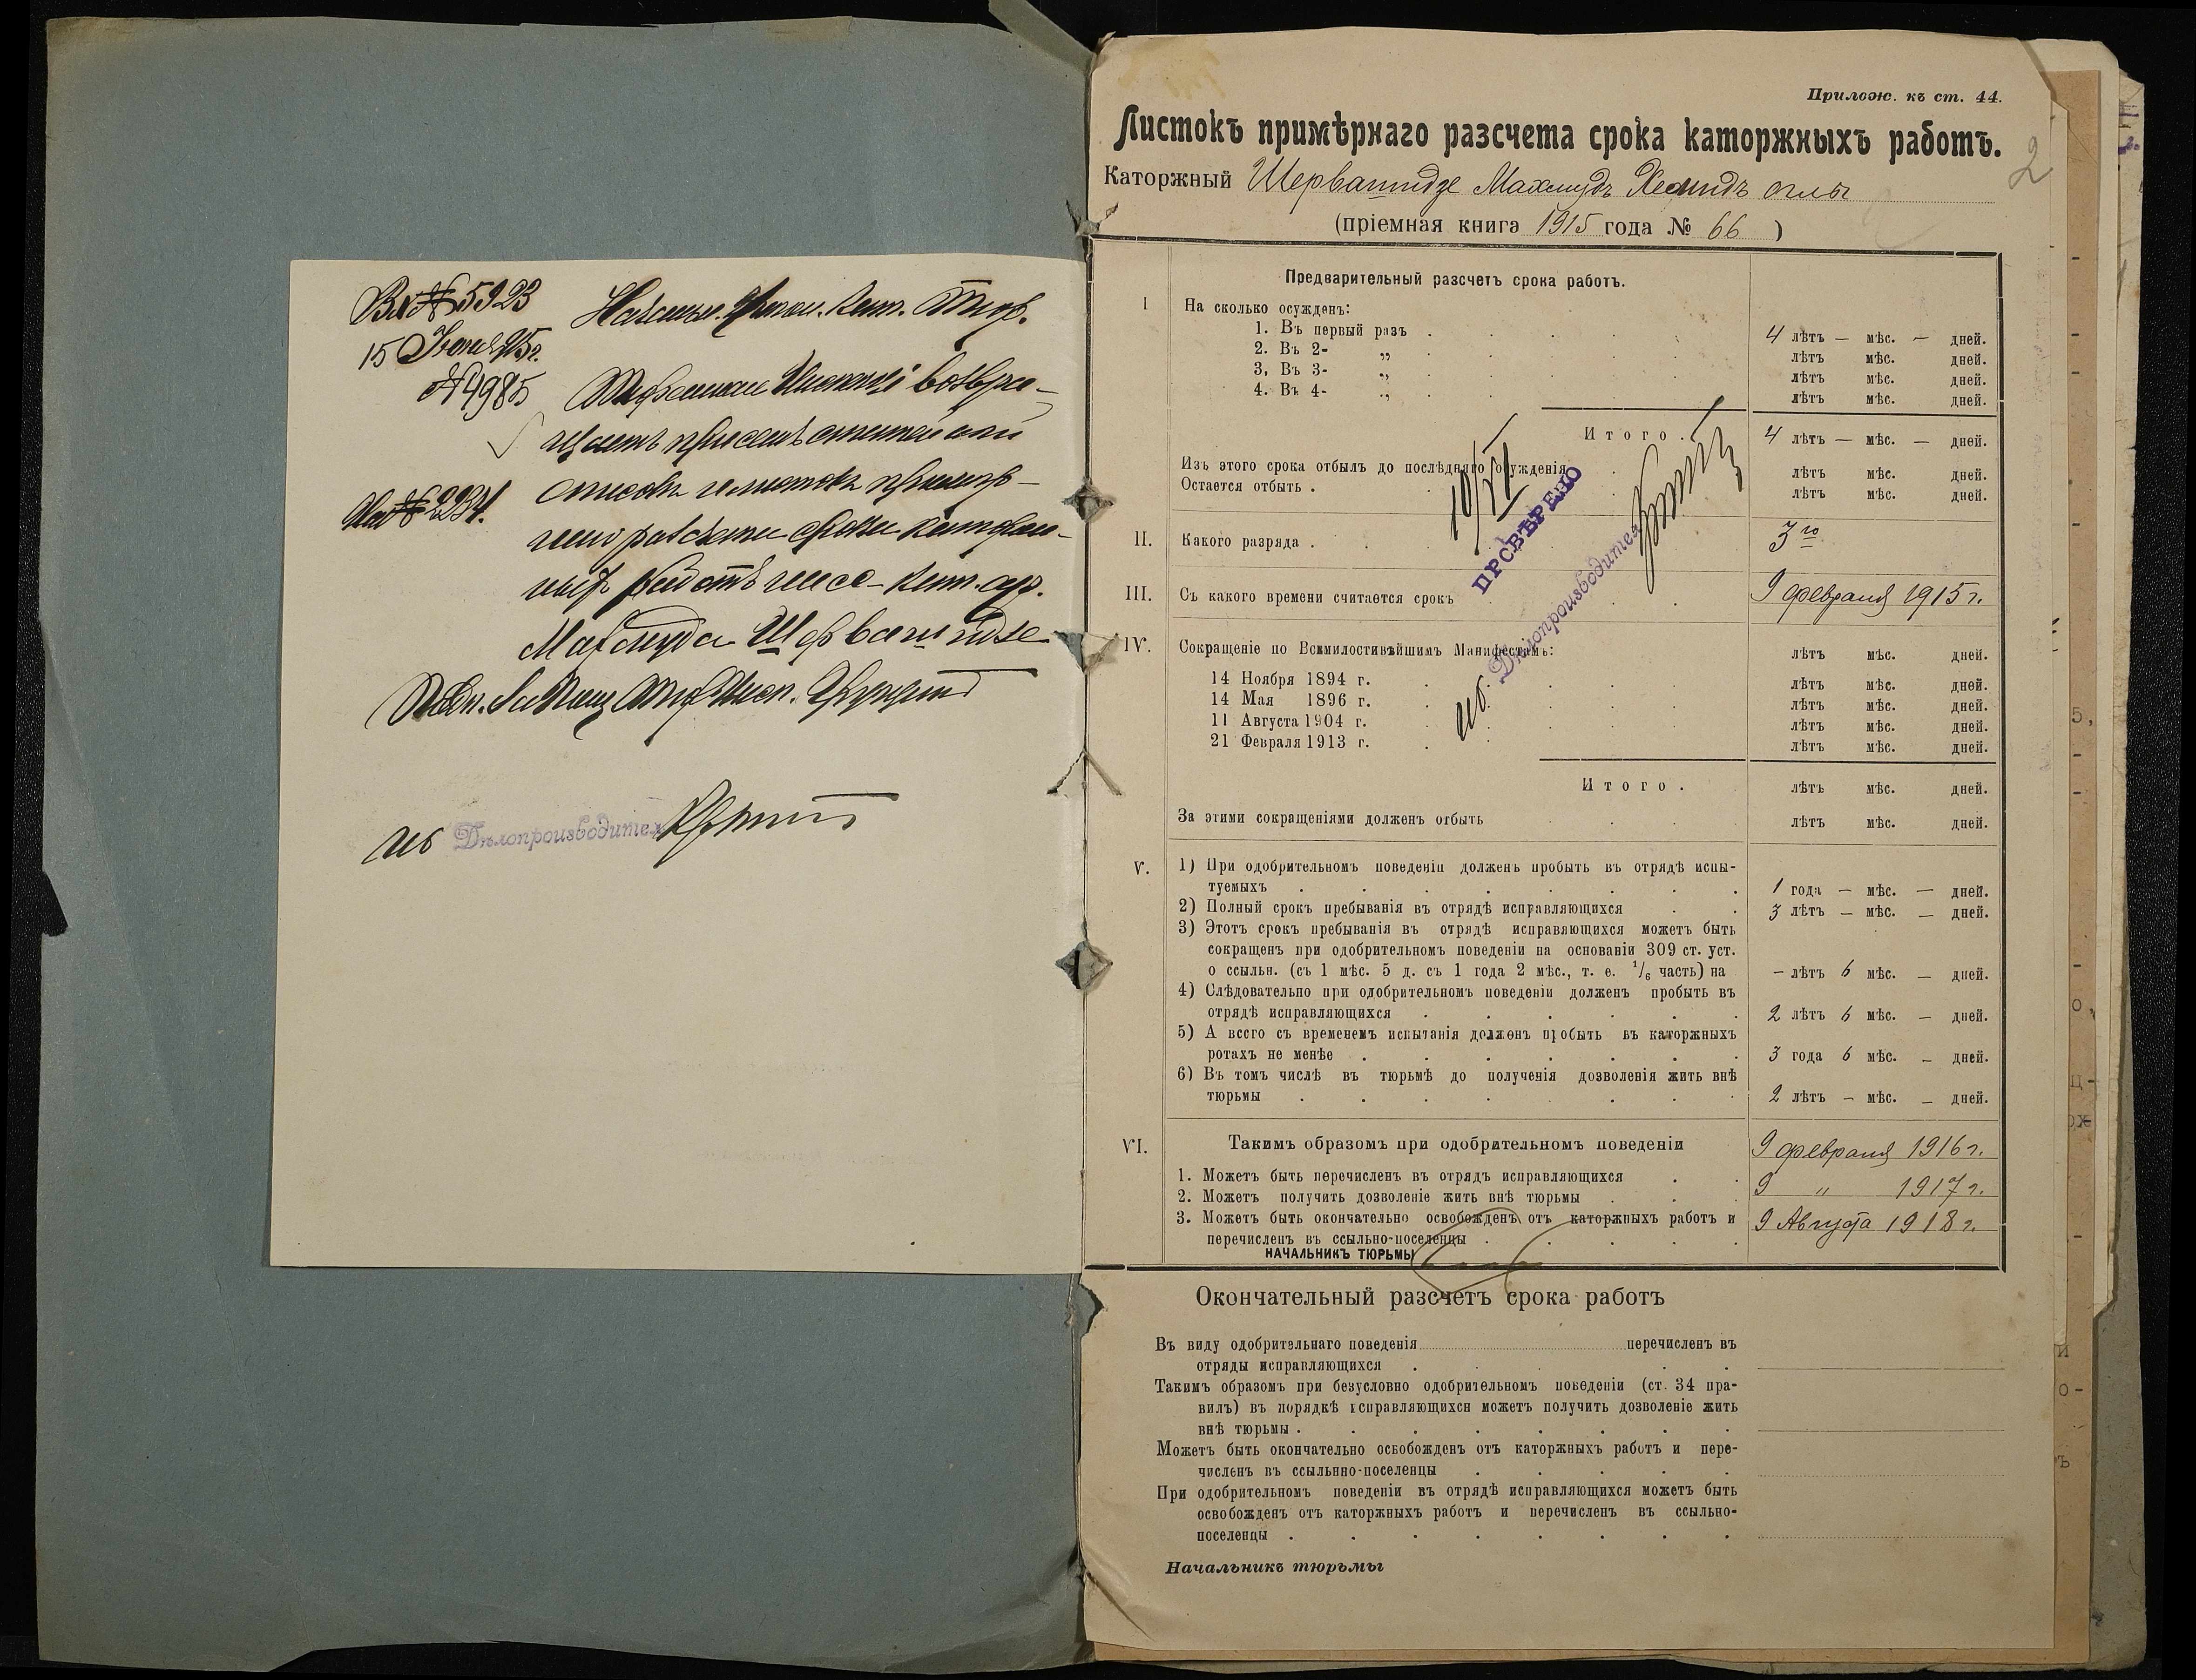 Вх № 5923
15 Іюня 915 г.
№ 4985
Начальн. кат. Тюр.
возвра-
щаетъ при семъ статейный
Исх № 2234.
списокъ и листокъ примѣр-
наго разсчета срока каторж-
ныхъ работъ кат. ар.
Махмуда Шервашидзе
Дѣлопроизводитель
Прилож. къ ст. 44.
Листокъ примѣрнаго разсчета срока каторжныхъ работъ.
2
Каторжный Шервашидзе Махмудъ Хемидъ оглы
(пріемная книга 1915 года № 66 )
Предварительный разсчетъ срока работъ.
I На сколько осужденъ:
1. Въ первый разъ . 4 лѣтъ — мѣс. — дней.
2. Въ 2- „ лѣтъ мѣс. дней.
3, Въ 3- „ лѣтъ мѣс. дней.
4. Въ 4- „ лѣтъ мѣс. дней.
Итого . 4 лѣтъ — мѣс. — дней.
Изъ этого срока отбылъ до послѣдняго осужденія лѣтъ мѣс. дней.
Остается отбыть . лѣтъ мѣс. дней.
ПРОВѢРЕНО
Дѣлопроизводитель
II. Какого разряда . 3го
III. Съ какого времени считается срокъ 9 февраля 1915 г.
IV. Сокращеніе по Всемилостивѣйшимъ Манифестамъ: лѣтъ мѣс. дней.
14 Ноября 1894 г. лѣтъ мѣс. дней.
14 Мая 1896 г. лѣтъ мѣс. дней.
11 Августа 1904 г. лѣтъ мѣс. дней.
21 Февраля 1913 г. лѣтъ мѣс. дней.
Итого . лѣтъ мѣс. дней.
За этими сокращеніями долженъ отбыть лѣтъ мѣс. дней.
V. 1) При одобрительномъ поведеніи долженъ пробыть въ отрядѣ испы-
туемыхъ . 1 года — мѣс. — дней.
2) Полный срокъ пребыванія въ отрядѣ исправляющихся 3 лѣтъ — мѣс. — дней.
3) Этотъ срокъ пребыванія въ отрядѣ исправяющихся можетъ быть
сокращенъ при одобрительномъ поведеніи на основаніи 309 ст. уст.
о ссыльн. (съ 1 мѣс. 5 д. съ 1 года 2 мѣс., т. е. 1/6 часть) на — лѣтъ 6 мѣс. — дней.
4) Слѣдовательно при одобрительномъ поведеніи долженъ пробыть въ
отрядѣ исправляющихся . 2 лѣтъ 6 мѣс. — дней.
5) А всего съ временемъ испытанія долженъ пробыть въ каторжныхъ
ротахъ не менѣе . 3 года 6 мѣс. — дней.
6) Въ томъ числѣ въ тюрьмѣ до полученія дозволенія жить внѣ
тюрьмы . 2 лѣтъ — мѣс. — дней.
VI. Такимъ образомъ при одобрительномъ поведеніи
1. Можетъ быть перечисленъ въ отрядъ исправляющихся 9 февраля 1916 г.
2. Можетъ получить дозволеніе жить внѣ тюрьмы 9 „ 1917 г.
3. Можетъ быть окончательно освобожденъ отъ каторжныхъ работъ и 9 Августа 1918 г.
перечисленъ въ ссыльно-поселенцы .
НАЧАЛЬНИКЪ ТЮРЬМЫ
Окончательный разсчетъ срока работъ
Въ виду одобрительнаго поведенія перечисленъ въ
отряды исправляющихся .
Такимъ образомъ при безусловно одобрительномъ поведеніи (ст. 34 пра-
вилъ) въ порядкѣ исправляющихся можетъ получить дозволеніе жить
внѣ тюрьмы .
Можетъ быть окончательно освобожденъ отъ каторжныхъ работъ и пере-
численъ въ ссыльнно-поселенцы .
При одобрительномъ поведеніи въ отрядѣ исправляющихся можетъ быть
освобожденъ отъ каторжныхъ работъ и перечисленъ въ ссыльно-
поселенцы .
Начальникъ тюрьмы